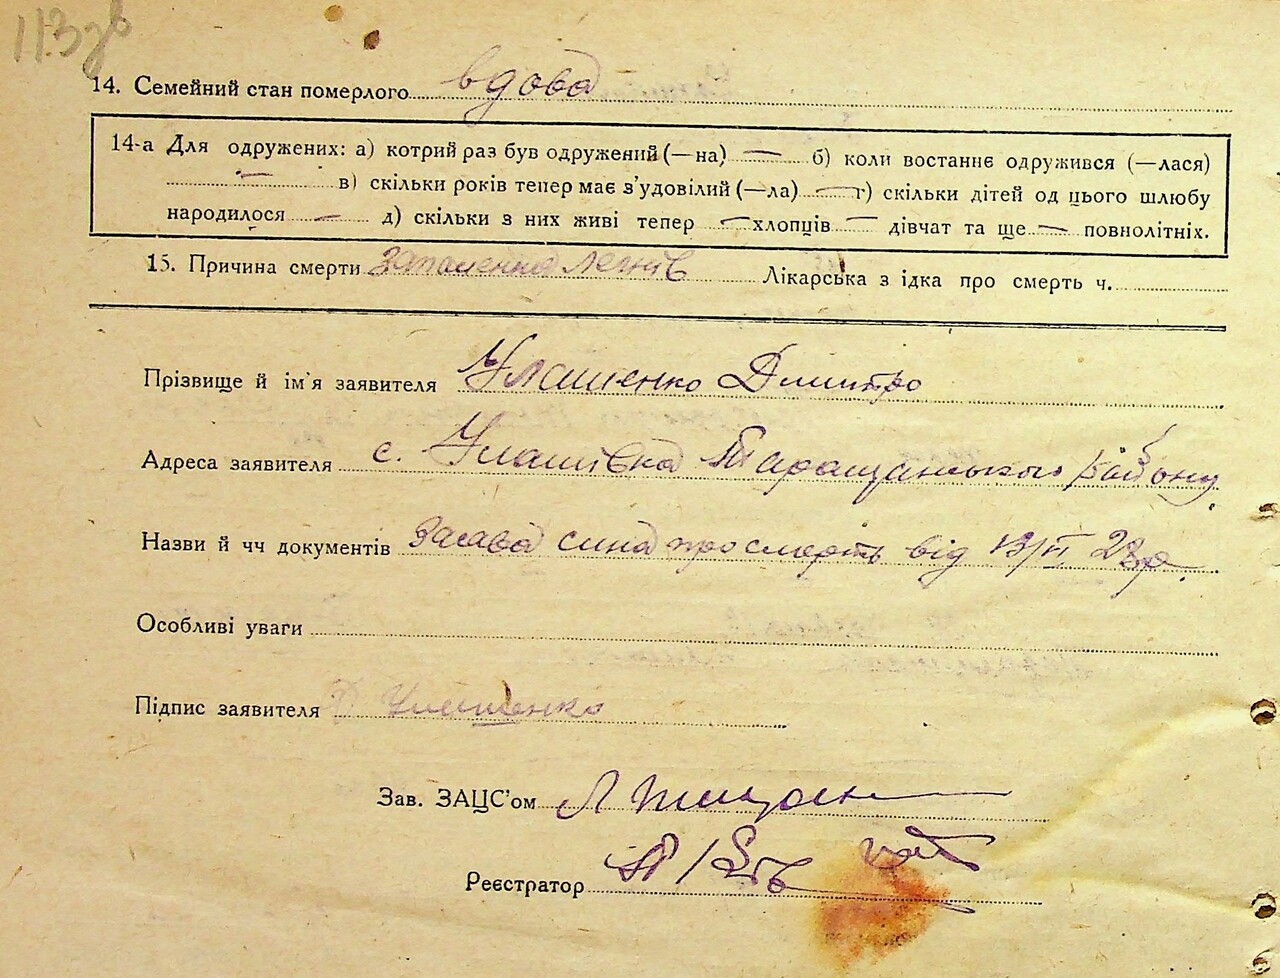 113 зв
14. Семейний стан померлого вдова
14-а Для одружених: а) котрий раз був одружений (—на) — б) коли востаннє одружився (—лася)
— в) скільки років тепер має з'удовілий (—ла) — г) скільки дітей од цього шлюбу
народилося — д) скільки з них живі тепер — хлопців — дівчат та ще — повнолітніх.
15. Причина смерти запаленна легнів Лікарська з ідка про смерть ч.
Прізвище й ім'я заявителя Улашенко Дмитро
Адреса заявителя с. Улашівка Таращанського району
Назви й чч документів Заява сина про смерть від 13/VI 23р.
Особливі уваги
Підпис заявителя Д Улашенко
Зав. ЗАЦС'ом
Реєстратор